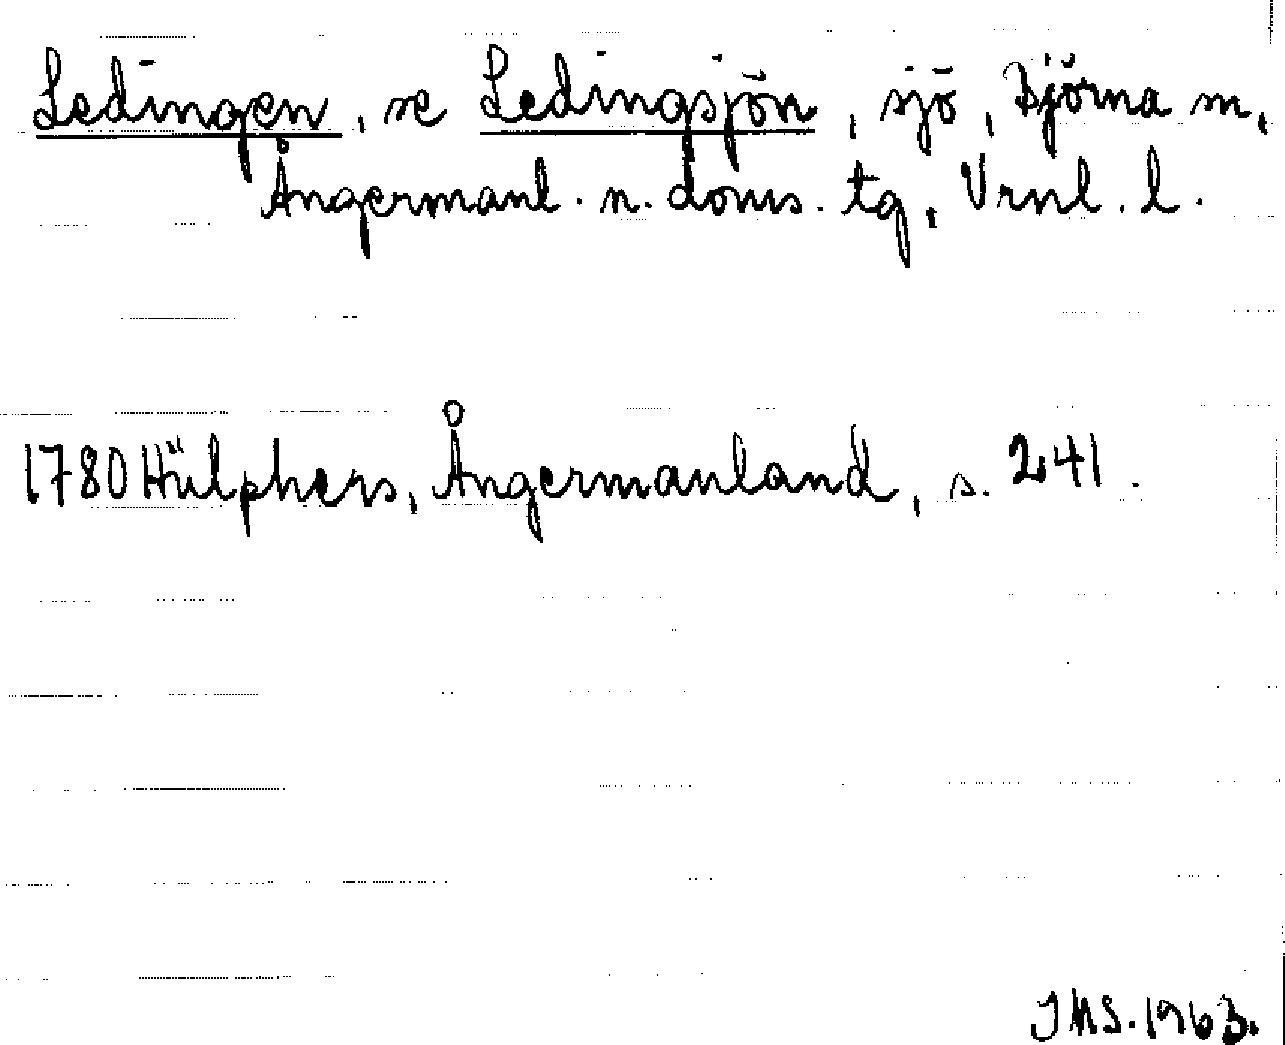 Ledingen, se Ledingsjön, sjö, Björna sn,
Ångermanl. n. doms. tg, Vrnl. l.
1780 Hülphers, Ångermanland, s. 241.
JMS. 1963.